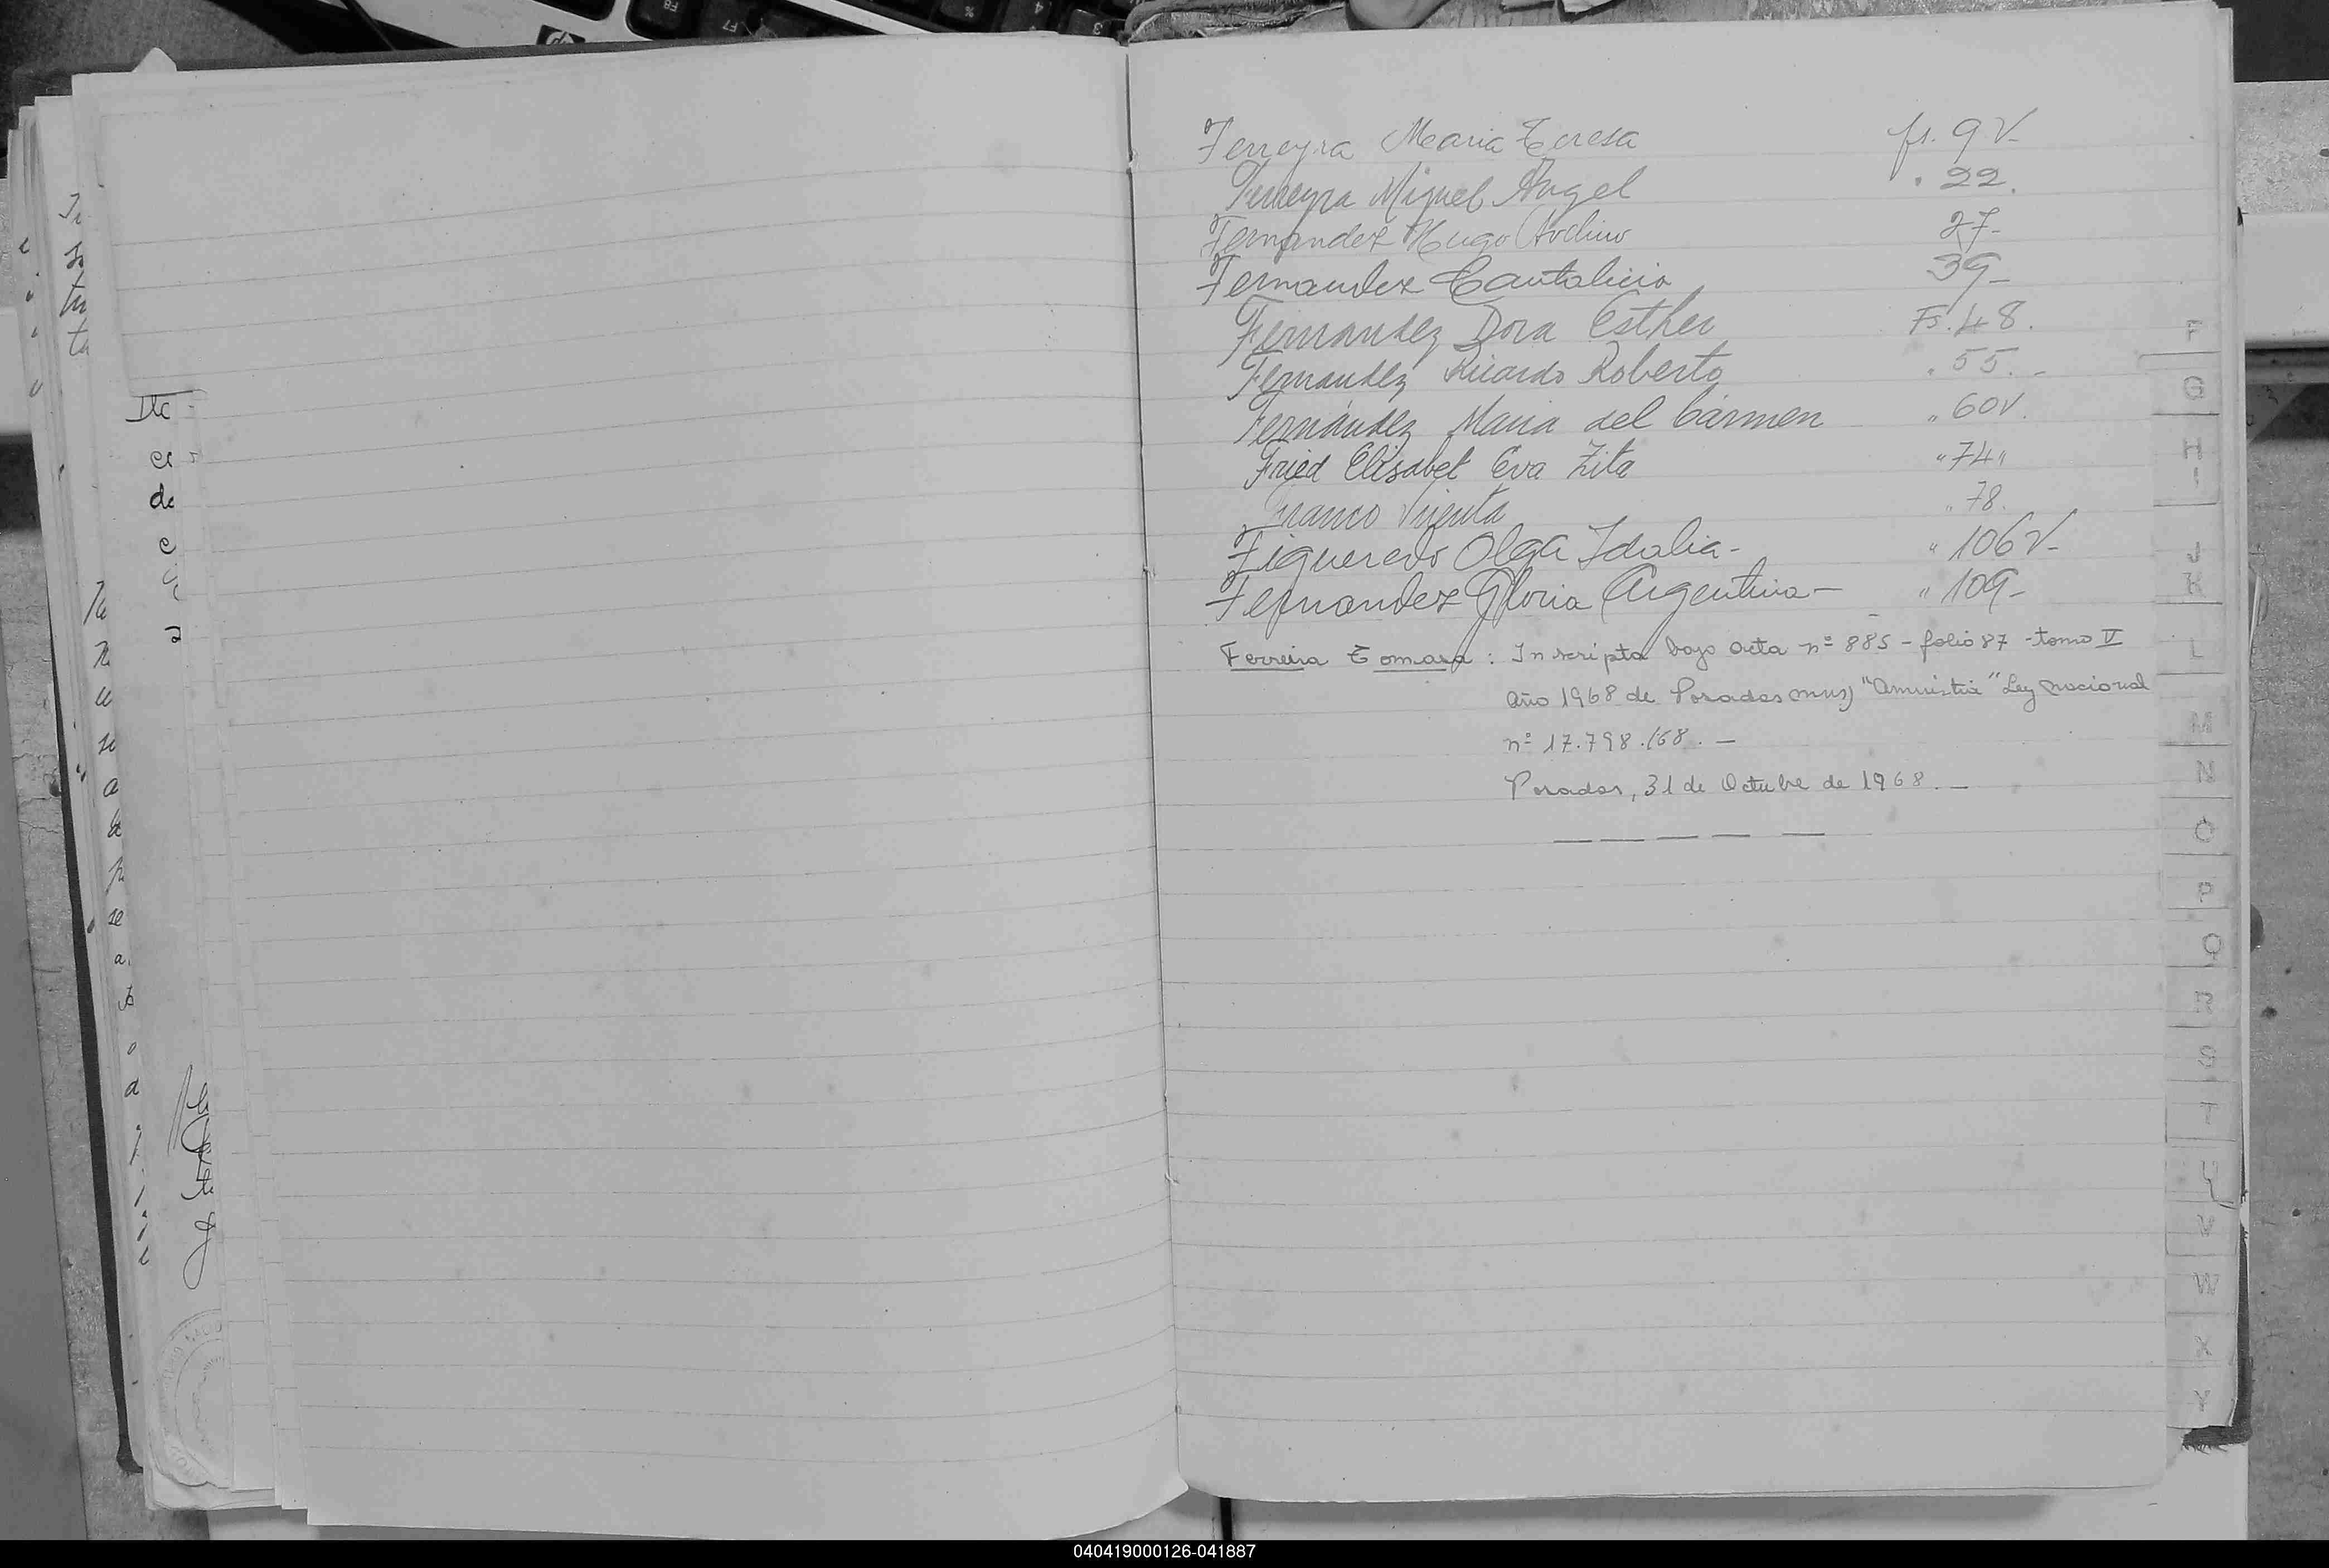 Ferreyra Maria Teresa fs. 9 V-
Ferreyra Miguel Angel " 22.
Fernandez Hugo Avelino 27-
Fernandez Cantalicio 39-
Fernandez Dora Esther Fs. 48.
Fernandez Ricardo Roberto " 55.-
Fernández Maria del Cármen " 60V.
Fried Elisabet Eva Zita " 74"
Franco " 78.
Figueredo Olga Idalia- " 106 V-
Fernandez Gloria Argentina- " 109-
Ferreira Tomasa : Inscripta bajo acta nº 885 - folio 87 - tomo V
año 1968 de Posadas (mns) "Amnistia" Ley nacional
nº 17.798/68. -
Posadas, 31 de Octubre de 1968. -
F
G
H
I
J
K
L
M
N
O
P
Q
R
S
T
U
V
W
X
Y
040419000126-041887